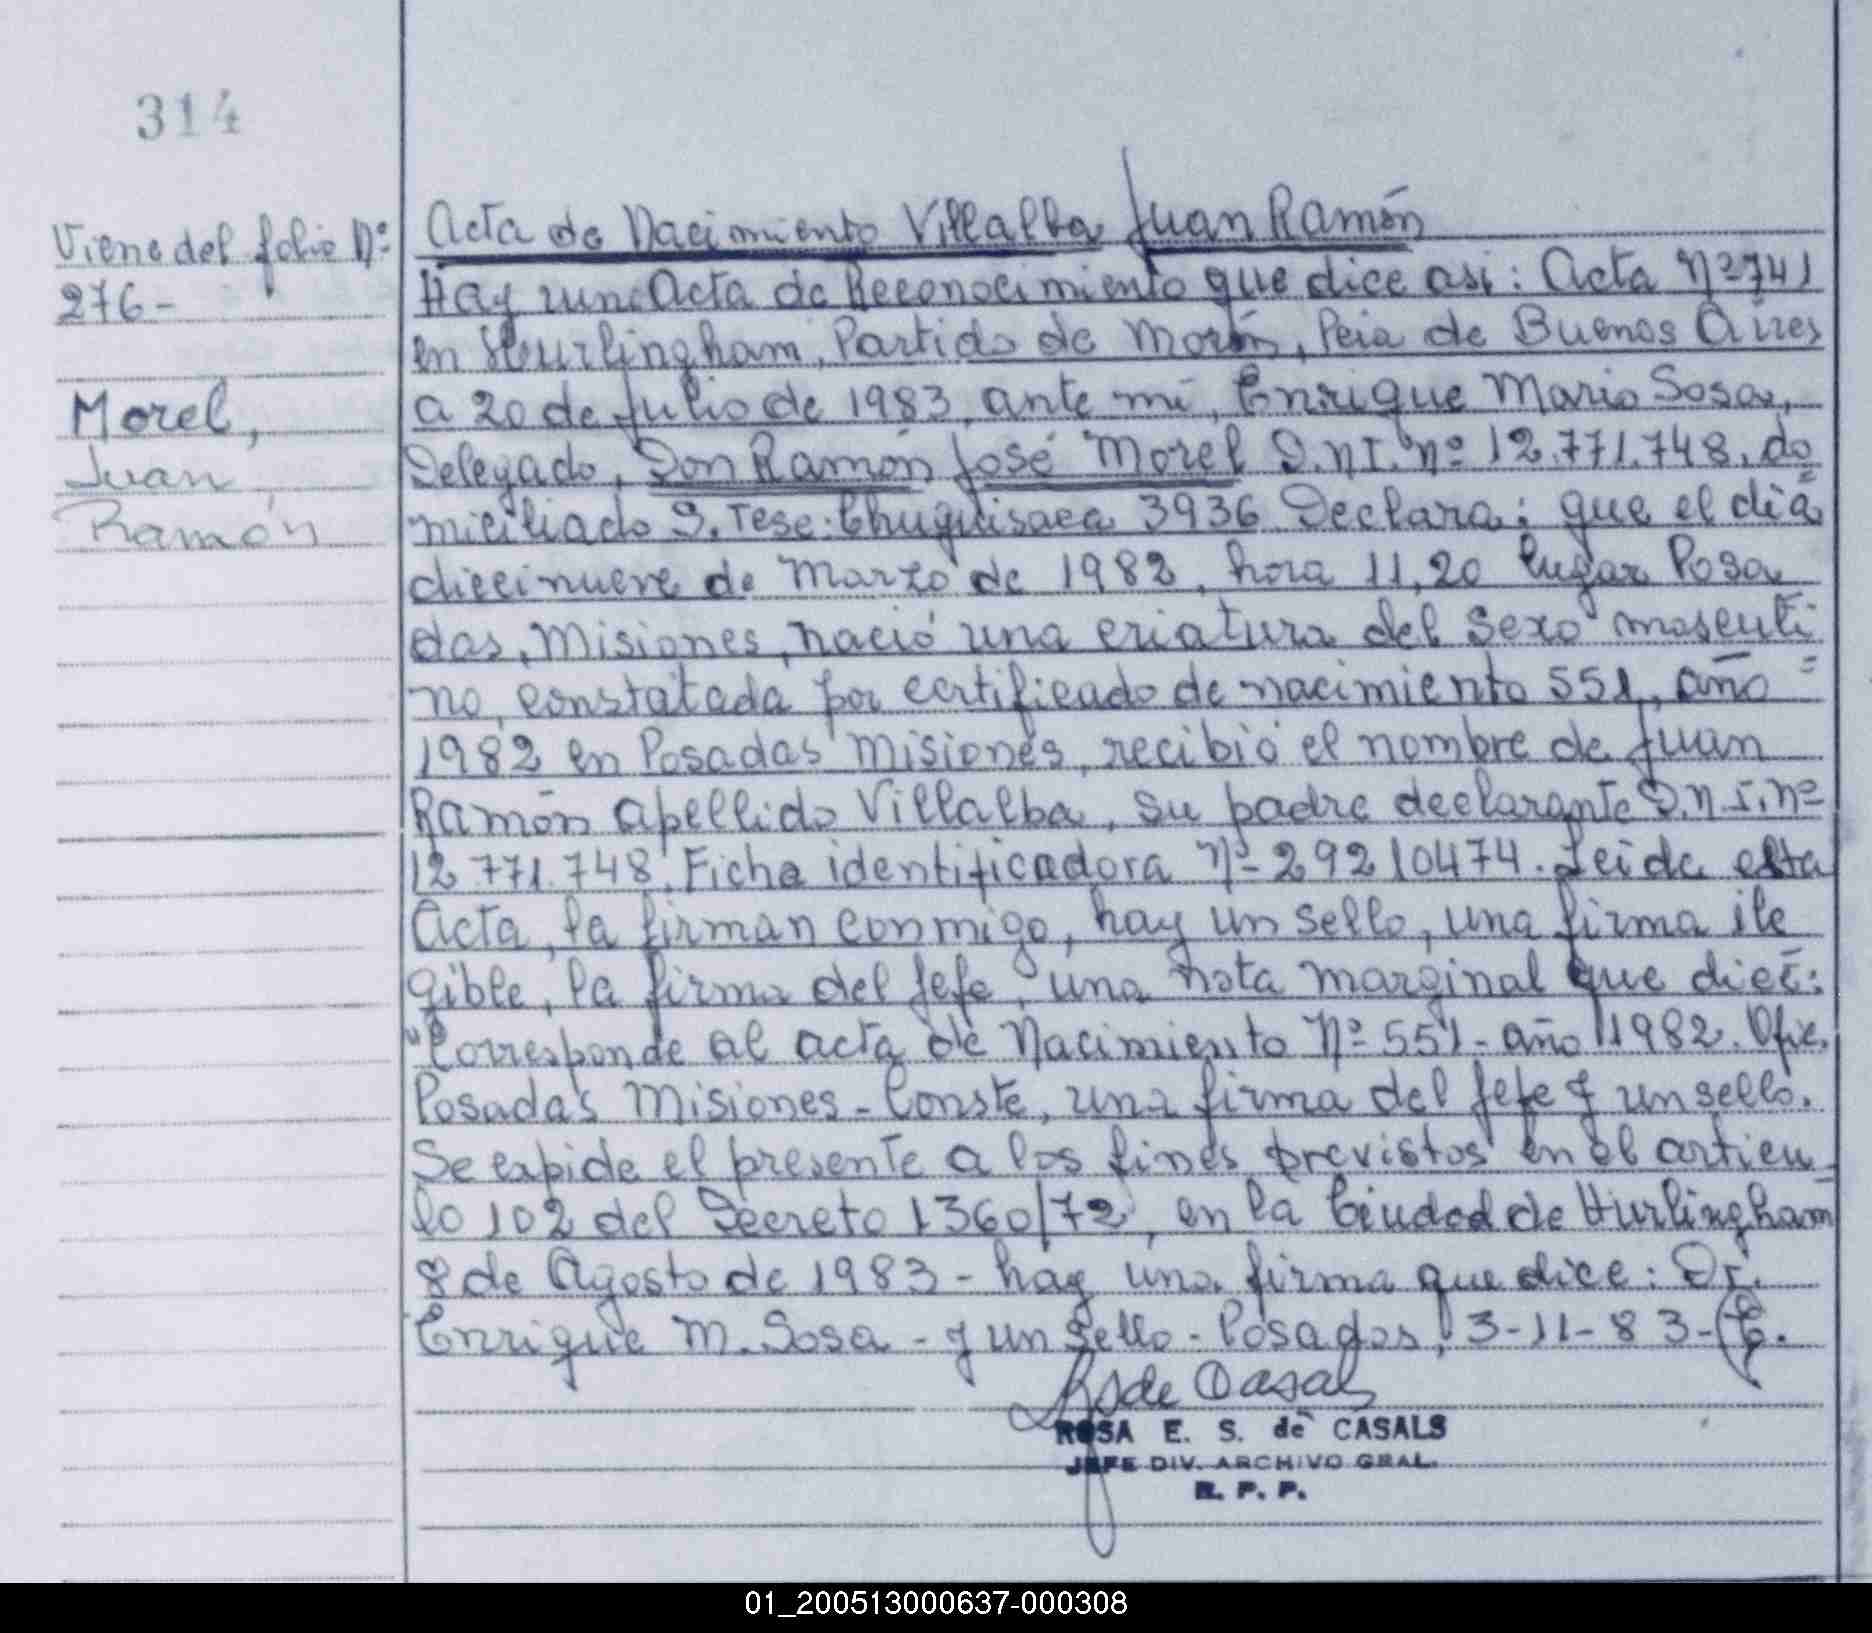 314
Viene del folio Nº
276-
Morel,
Juan
Ramón
Acta de Nacimiento Villalba Juan Ramón
Hay una Acta de Reconocimiento que dice asi: Acta Nº 741
en Hurlingham, Partido de Morón, Pcia de Buenos Aires
a 20 de Julio de 1983, ante mi, Enrique Mario Sosa,
Delegado, Don Ramón José Morel D.N.I. Nº 12.771.748, do
miciliado S. Tese: Chuquisaca 3936 Declara: que el dia
diecinueve de Marzo de 1982, hora 11,20 lugar Posa
das, Misiones, nació una criatura del sexo masculi
no, constatada por certificado de nacimiento 551, año
1982 en Posadas Misiones, recibió el nombre de Juan
Ramón apellido Villalba, su padre declarante D.N.I. Nº
12.771.748. Ficha identificadora Nº 29210474. Leida esta
Acta, la firman conmigo, hay un sello, una firma ile
gible, la firma del Jefe, una nota marginal que dice:
"Corresponde al acta de Nacimiento Nº 551- año 1982. Ofic.
Posadas Misiones - Conste, una firma del Jefe y un sello.
Se expide el presente a los fines previstos en el articu
lo 102 del Decreto 1360/72, en la Ciudad de Hurlingham
8 de Agosto de 1983 - hay una firma que dice: Dr.
Enrique M. Sosa - y un Sello - Posadas, 3-11-83-
de Casals
ROSA E. S. de CASALS
JEFE DIV. ARCHIVO GRAL.
R. P. P.
01_200513000637-000308